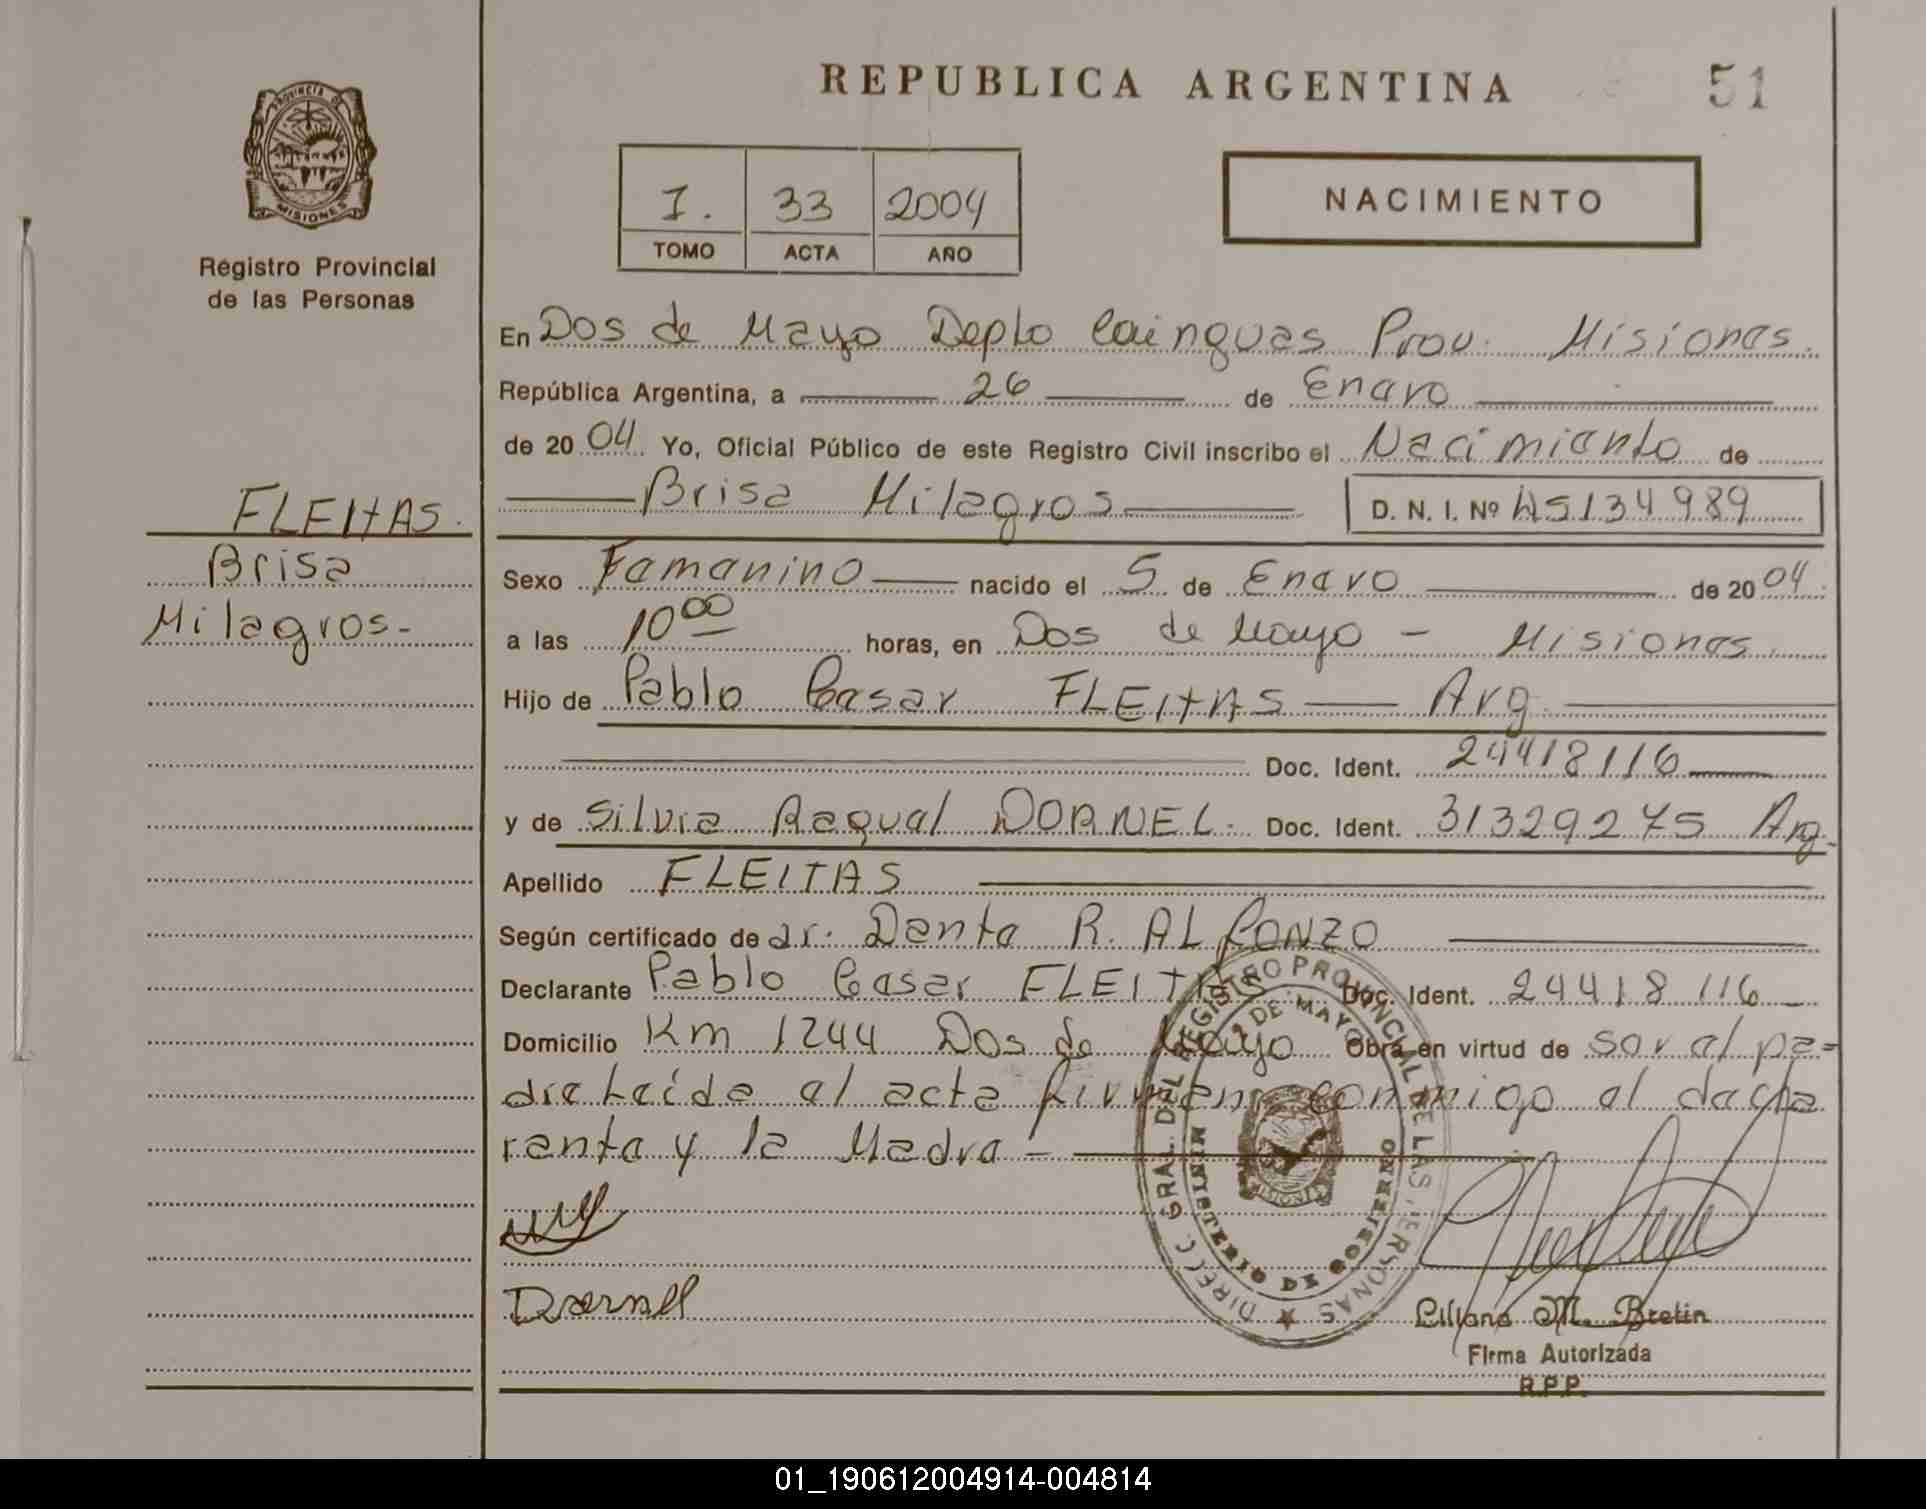 REPUBLICA ARGENTINA
51
PROVINCIA DE
MISIONES
Registro Provincial
de las Personas
I. 33 2004
TOMO ACTA AÑO
NACIMIENTO
En Dos de Mayo Depto Cainguas Prov. Misiones.
República Argentina, a 26 de Enero
de 20 04 Yo, Oficial Público de este Registro Civil inscribo el Nacimiento de
Brisa Milagros D. N. I. Nº 45134989
FLEITAS.
Brisa
Milagros.-
Sexo Femenino nacido el 5 de Enero de 20 04.
a las 10 00 horas, en Dos de Mayo - Misiones.
Hijo de Pablo Cesar FLEITAS Arg.
Doc. Ident. 24418116
y de Silvia Raquel DORNEL. Doc. Ident. 31329275 Arg.
Apellido FLEITAS
Según certificado de dr. Dante R. ALFONZO
Declarante Pablo Cesar FLEITAS Doc. Ident. 24418116
Domicilio Km 1244 Dos de Mayo Obra en virtud de ser el pa=
dre Leída el acta firman conmigo el decla
rante y la Madre -
DIREC. GRAL. DEL REGISTRO PROVINCIAL DE LAS PERSONAS
2 DE MAYO
MINISTERIO DE GOBIERNO
Dornell
Liliana M. Bretin
Firma Autorizada
R.P.P.
01_190612004914-004814